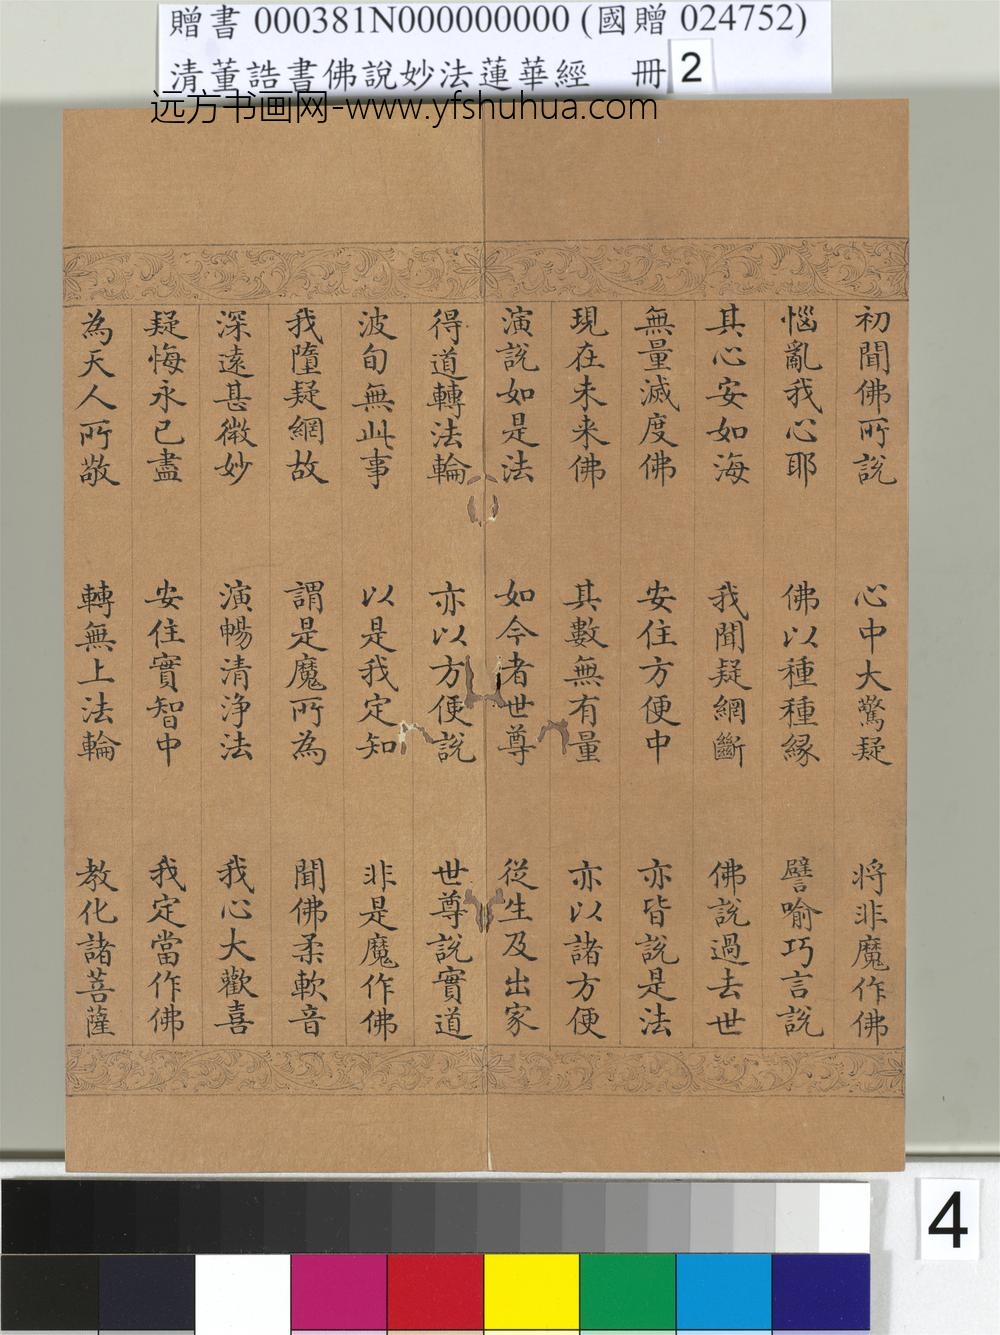 贈書 000381N000000000 (國贈 024752)
清董誥書佛說妙法蓮華經 冊 2
远方书画网-www.yfshuhua.com
初聞佛所說 心中大驚疑 將非魔作佛
惱亂我心耶 佛以種種緣 譬喻巧言說
其心安如海 我聞疑網斷 佛說過去世
無量滅度佛 安住方便中 亦皆說是法
現在未来佛 其數無有量 亦以諸方便
演說如是法 如今者世尊 從生及出家
得道轉法輪 亦以方便說 世尊說實道
波旬無此事 以是我定知 非是魔作佛
我墮疑網故 謂是魔所為 聞佛柔軟音
深遠甚微妙 演暢清淨法 我心大歡喜
疑悔永已盡 安住實智中 我定當作佛
為天人所敬 轉無上法輪 教化諸菩薩
4